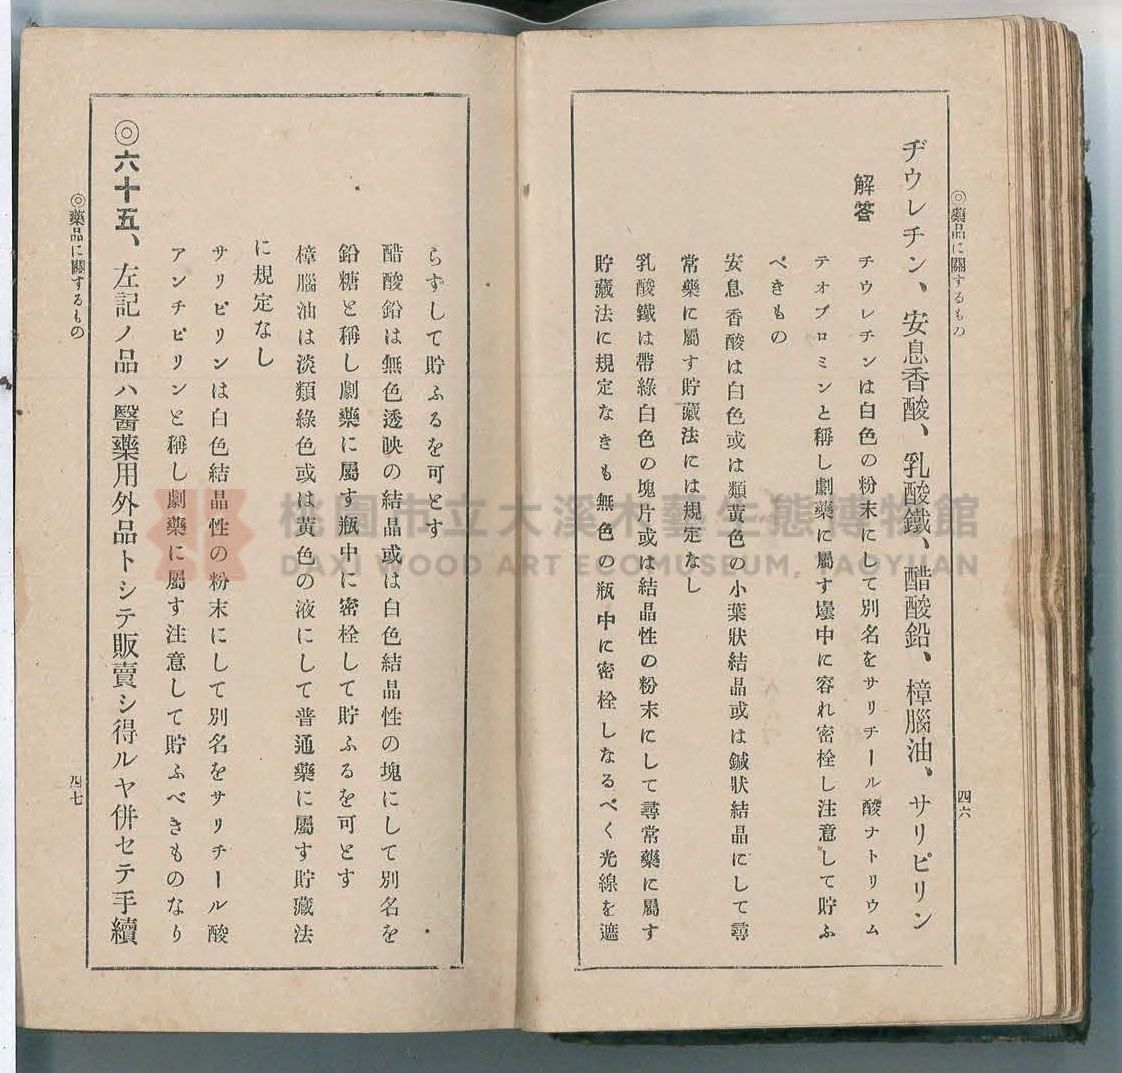 ◎藥品に關するもの
四六
ヂウレチン、安息香酸、乳酸鐵、醋酸鉛、樟腦油、サリピリン
解答
チウレチンは白色の粉末にして別名をサリチール酸ナトリウム
テオブロミンと稱し劇藥に屬す壜中に容れ密栓し注意して貯ふ
べきもの
安息香酸は白色或は類黃色の小葉狀結晶或は鍼狀結晶にして尋
常藥に屬す貯藏法には規定なし
乳酸鐵は帶綠白色の塊片或は結晶性の粉末にして尋常藥に屬す
貯藏法に規定なきも無色の瓶中に密栓しなるべく光線を遮
らずして貯ふるを可とす
醋酸鉛は無色透映の結晶或は白色結晶性の塊にして別名を
鉛糖と稱し劇藥に屬す瓶中に密栓して貯ふるを可とす
樟腦油は淡類綠色或は黃色の液にして普通藥に屬す貯藏法
に規定なし
サリピリンは白色結晶性の粉末にして別名をサリチール酸
アンチピリンと稱し劇藥に屬す注意して貯ふべきものなり
◎六十五、左記ノ品ハ醫藥用外品トシテ販賣シ得ルヤ併セテ手續
◎藥品に關するもの
四七
桃園市立大溪木藝生態博物館
DAXI WOOD ART ECOMUSEUM, TAOYUAN